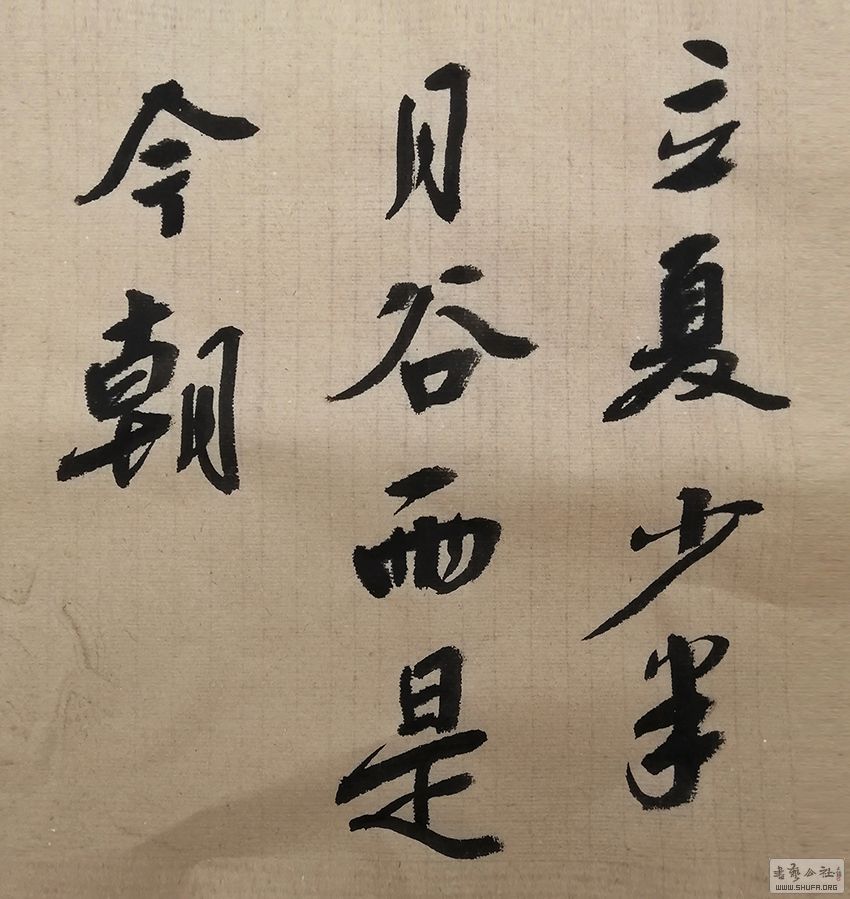 立夏少半
月谷雨是
今朝
書藝公社
WWW.SHUFA.ORG